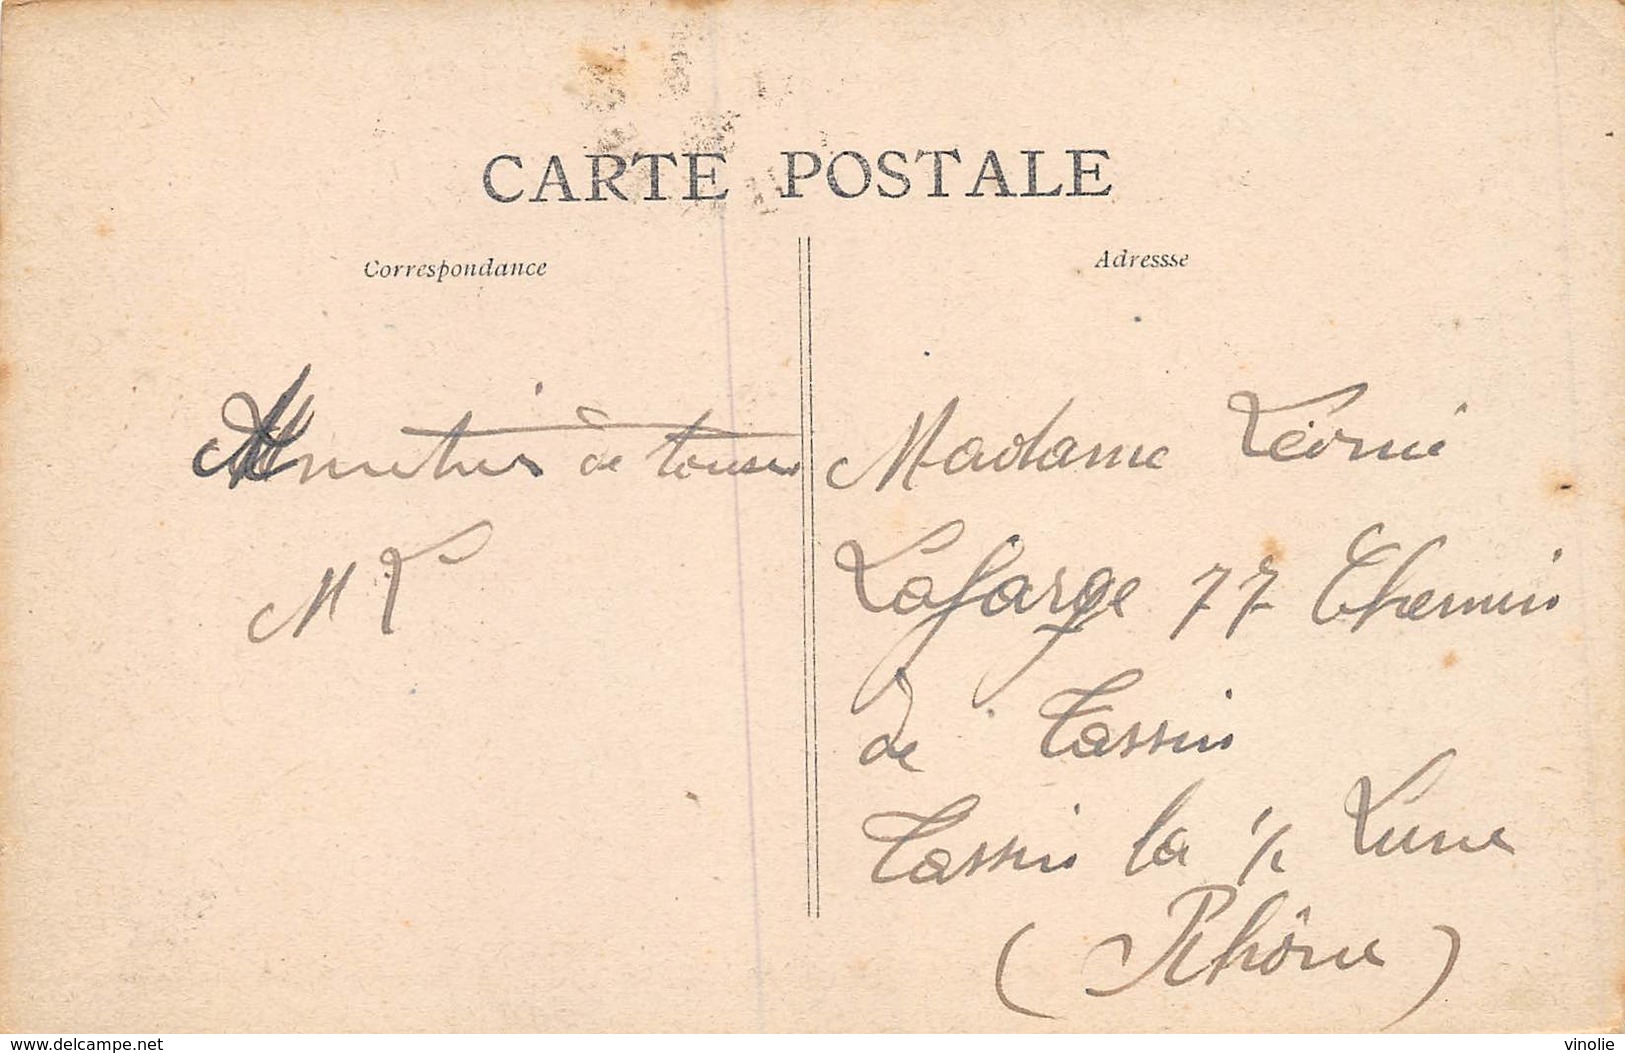 CARTE POSTALE
Correspondance
Adressse
Amitiés de tous
M L
Madame Léonie
Lafarge 77 Chemin
de Tassin
Tassin la 1/2 Lune
(Rhône)
www.delcampe.net
vinolie